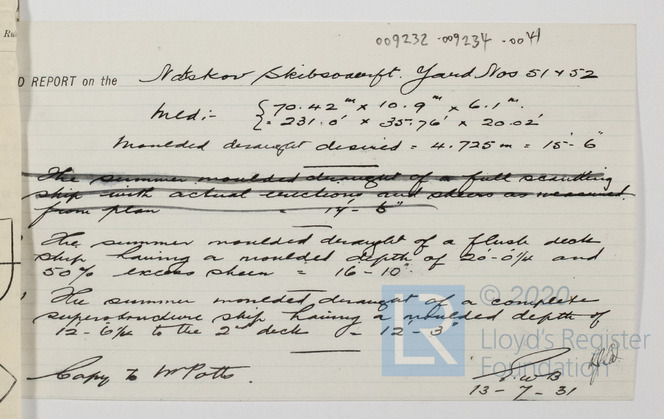 009232-009234-0041
Ru
D REPORT on the Nakskov Skibsvaerft. Yard Nos 51 & 52
Mld:- { 70.42 m x 10.9 m x 6.1 m.
= 231.0' x 35.76' x 20.02'
Moulded draught desired = 4.725 m = 15'-6"
The summer moulded draught of a full scantling
ship with actual erections and sheers as measured
from plan = 14'-5"
The summer moulded draught of a flush deck
ship having a moulded depth of 20'-0¼ and
50% excess sheer = 16'-10".
The summer moulded draught of a complete
superstructure ship having a moulded depth of
12'-6¼ to the 2nd deck = 12'-3"
Copy to Mr Potts.
13-7-31
LR
© 2020
Lloyd's Register
Foundation